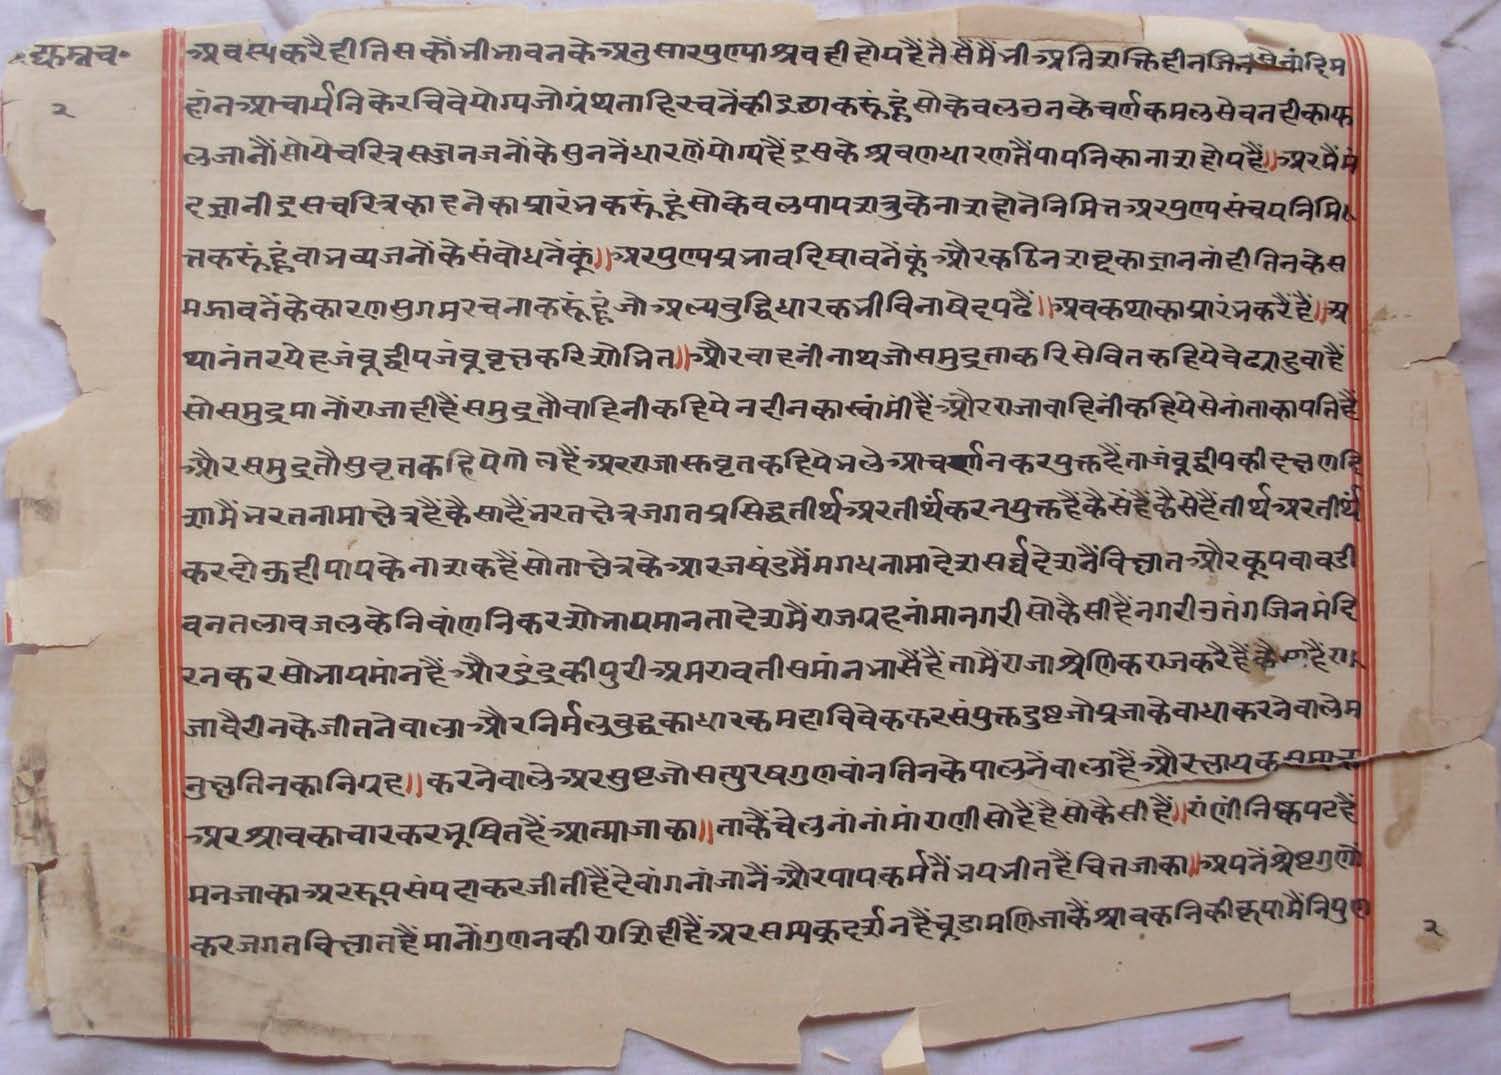 धम्मच॰
२
अवस्यकरैहीतिसकौंभीभावनकेअनुसारपुण्याश्रवहीहोयहैंतैसैंमैंभीअतिशक्तिहीनजिनसेनांदिम
हांनआचार्यनिकेरचिवेयोग्यजोग्रंथताहिरचनेंकीइछाकरूंहूंसोकेवलउनकेचर्णकमलसेवनहीकाफ
लजानौंसोयेचरित्रसज्जनजनोंकेसुननेंधारणेंयोग्यहैंइसकेश्रवणधारणतैंपापनिकानाशहोयहैं॥अरमैंमं
दज्ञानीइसचरित्रकाहनेकाप्रारंभकरूंहूंसोकेवलपापशत्रुकेनाशहोनेनिमित्तअरपुण्यसंचयनिमि
त्तकरूंहूंवाभव्यजनोंकेसंवोधनेंकूं॥अरपुण्यप्रभावदिषावनेंकूंऔरकठिनशब्दकाज्ञाननांहीतिनकेस
मझावनेंकेकारणसुगमरचनाकरूंहूंजोअल्पबुद्धिधारकभीविनाषेदपढैं॥अवकथाकाप्रारंभकरैंहैं॥अ
थानंतरयेहजंबूद्वीपजंबूवृक्षकरिशोभित॥औरवाहनींनाथजोसमुद्रताकरिसेवितकहियेवेढाडुवाहैं
सोसमुद्रमानोंराजाहीहैंसमुद्रतौवाहिनीकहियेनदीनकास्वांमींहैंऔरराजावाहिनींकहियेसेनांताकापतिहैं
औरसमुद्रतौसुवृत्तकहियेगोलहैंअरराजासुवृतकहियेभलेआचर्णनकरयुक्तहैंताजंबूद्वीपकीदक्षणदि
शामैंभरतनामाक्षेत्रहैंकैसाहैंभरतक्षेत्रजगतप्रसिद्धतीर्थअरतीर्थंकरनयुक्तहैंकैसेंहैंकैसेहैंतीर्थअरतीर्थं
करदोऊहीपापकेनाशकहैंसोताक्षेत्रकेआरजषंडमैंमगधनामादेशसर्वदेशनैंविक्षातऔरकूपवावडी
वनतलावजलकेनिवांणनिकरशोभायमानतादेशमैंराजग्रहनांमानगरीसोकैसीहैंनगरीउतंगजिनमंदि
रनकरसोभायमांनहैंऔरइंद्रकीपुरीअमरावतीसमांनभासैंहैंतामैंराजाश्रेणिकराजकरैहैंहैंरा
जावैरीनकेजीतनेवालाऔरनिर्मलबुद्धकाधारकमहाविवेककरसंयुक्तदुष्टजोप्रजाकेवाधाकरनेवालेम
नुक्षतिनकानिग्रह॥करनेवालेअरसुष्टजोसत्पुरषगुणवांनतिनकेपालनेंवालाहैंऔरक्षायक
अरश्रावकाचारकरभूषितहैंआत्माजाका॥ताकैंचेलनांनांमांराणीसोहैंहैसोकैसीहैं॥रांणींनिष्कपटहैं
मनजाकाअररूपसंपदाकरजीतीहैंदेवांगनांजानैंऔरपापकर्मतैंभयभीतहैंचित्तजाका॥अपनेंश्रेष्टगुणों
करजगतविक्षातहैंमानोंगुणनकीराशिहीहैंअरसम्यक्दर्शनहैंचूडामणिजाकैंश्रावकनिकीकृपामैंनिपुण
२